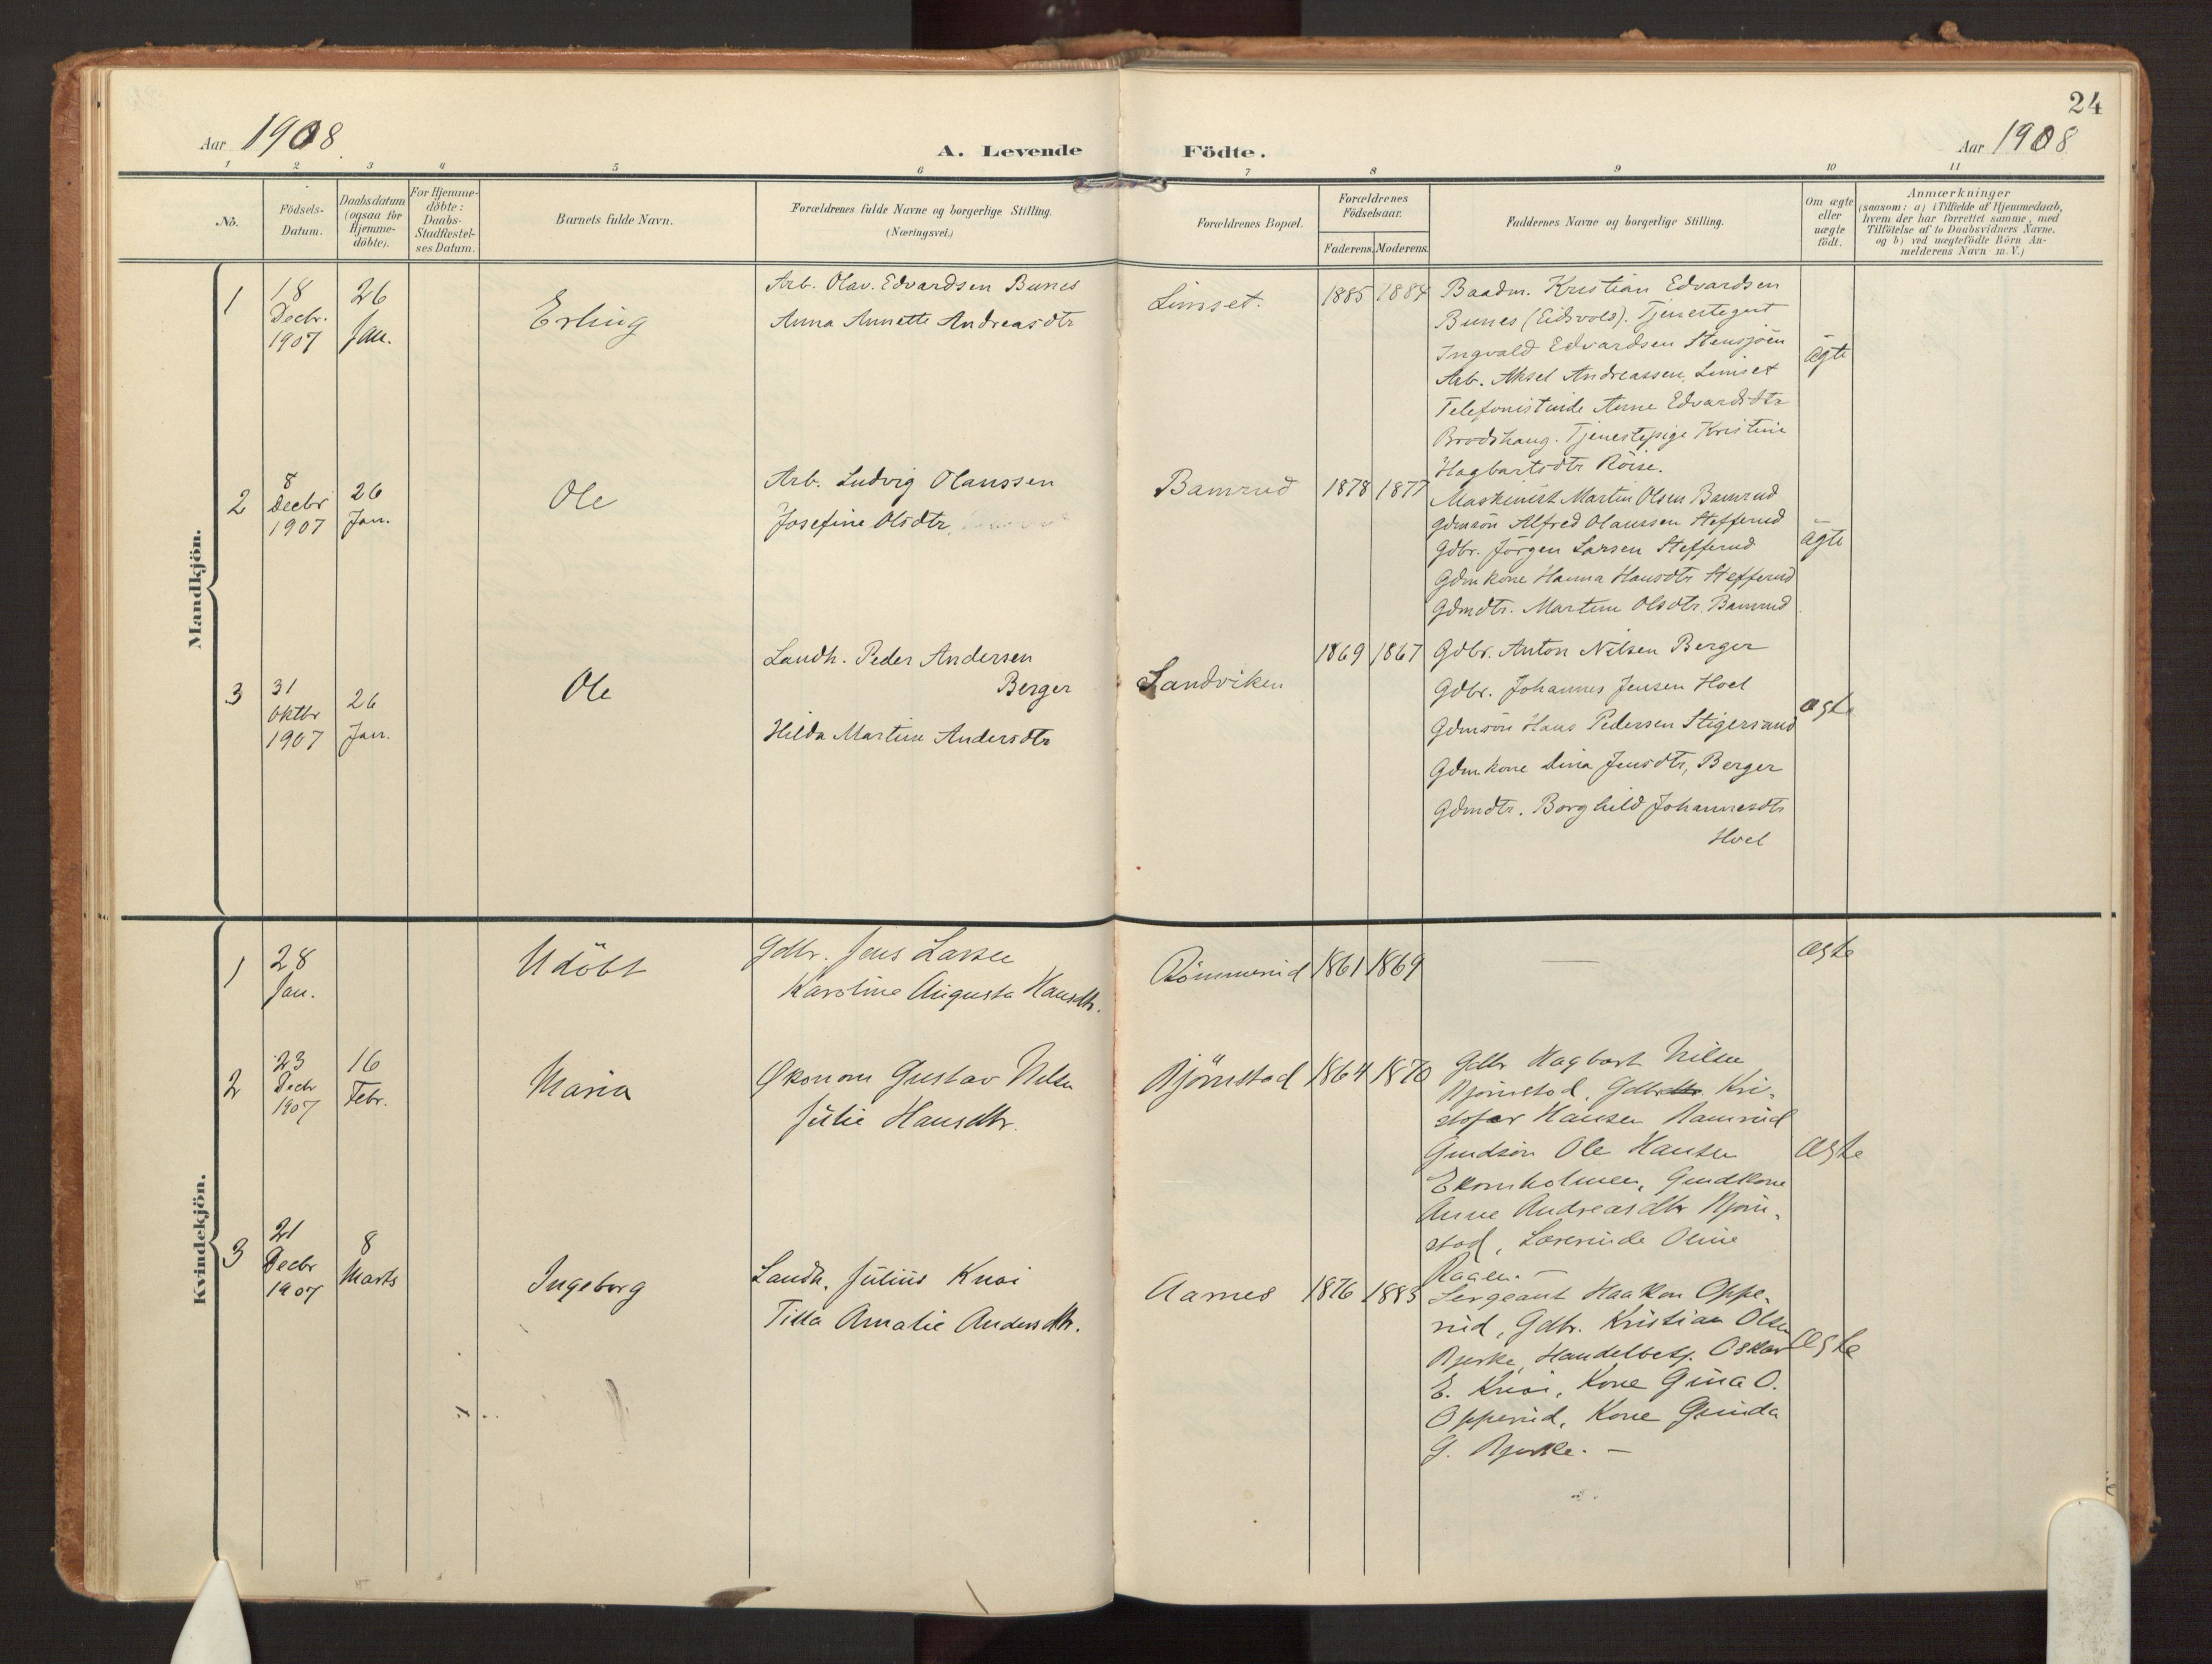 24
Aar 1908
A. Levende Födte.
Aar 1908
1 2 3 4 5 6 7 8 9 10 11
No.
Födsels-Datum.
Daabsdatum (ogsaa for Hjemme-döbte).
For Hjemme-döbte: Daabs-Stadfæstel-ses Datum.
Barnets fulde Navn.
Forældrenes fulde Navne og borgerlige Stilling.
(Næringsvei.)
Forældrenes Bopæl.
Forældrenes Födselsaar.
Faderens. Moderens.
Faddernes Navne og borgerlige Stilling.
Om ægte eller uægte födt.
Anmærkninger
(saasom: a) i Tilfælde af Hjemmedaab,
hvem der har forrettet samme, med
Tilföielse af to Daabsvidners Navne,
og b) ved uægtefödte Börn An-
melderens Navn m. V.)
Mandkjön.
1
18 Decbr. 1907
26 Jan.
Erling
Arb. Olav. Edvardsen Bunes
Anna Annette Andreasdtr
Limset.
1885 1884
Baadm. Kristian Edvardsen
Bunes (Eidsvold). Tjenestegut
Ingvald Edvardsen Stensjöen
Arb. Aksel Andreassen, Limset
Telefonistinde Anne Edvardsdtr
Brodshaug. Tjenestepige Kristine
Hagbartsdtr Röise.
ägte
2
8 Decbr 1907
26 Jan.
Ole
Arb. Ludvig Olaussen
Josefine Olsdtr
Bamrud
1878 1877
Maskinist Martin Olsen Bamrud
Gdmsön Alfred Olaussen Stefferud
Gdbr. Jörgen Larsen Stefferud
Gdmkone Hanna Hansdtr Stefferud
Gdmdtr. Martine Olsdtr. Bamrud
ägte
3
31 Oktbr 1907
26 Jan.
Ole
Landh. Peder Andersen
Berger
Hilda Martine Andersdtr
Sandviken
1869 1867
Gdbr. Anton Nilsen Berger
Gdbr. Johannes Jensen Hoel
Gdmsön Hans Pedersen Stigersand
Gdmkone Dina Jensdtr, Berger
Gdmdtr. Borghild Johannesdtr
Hoel
ægte
Kvindekjön.
1
28 Jan.
Udöbt
Gdbr. Jens Larsen
Karoline Augusta Hansdtr.
Römmerud
1861 1869
—
ægte
2
23 Decbr 1907
16 Febr.
Maria
Økonom Gustav Nilsen
Julie Hansdtr.
Bjørnstad
1864 1870
Gdbr Hagbart Nilsen
Bjørnstad, Gdbr Kri-
stofer Hansen Ramrud
Gmdsön Ole Hansen
Ekornholmen, Gmdkone
Anne Andreasdtr Bjørn-
stad, Lærerinde Oline
Raaen. —
ægte
3
21 Decbr 1907
8 Marts
Ingeborg
Landh. Julius Knai
Tilla Amalie Andersdtr.
Aarnes
1876 1883
Sergeant Haakon Oppe-
rud, Gdbr. Kristian Olsen
Bjerke, Handelbetj. Oskar
E. Knai, Kone Gina O.
Opperud, Kone Gunda
G. Bjerke. —
ægte